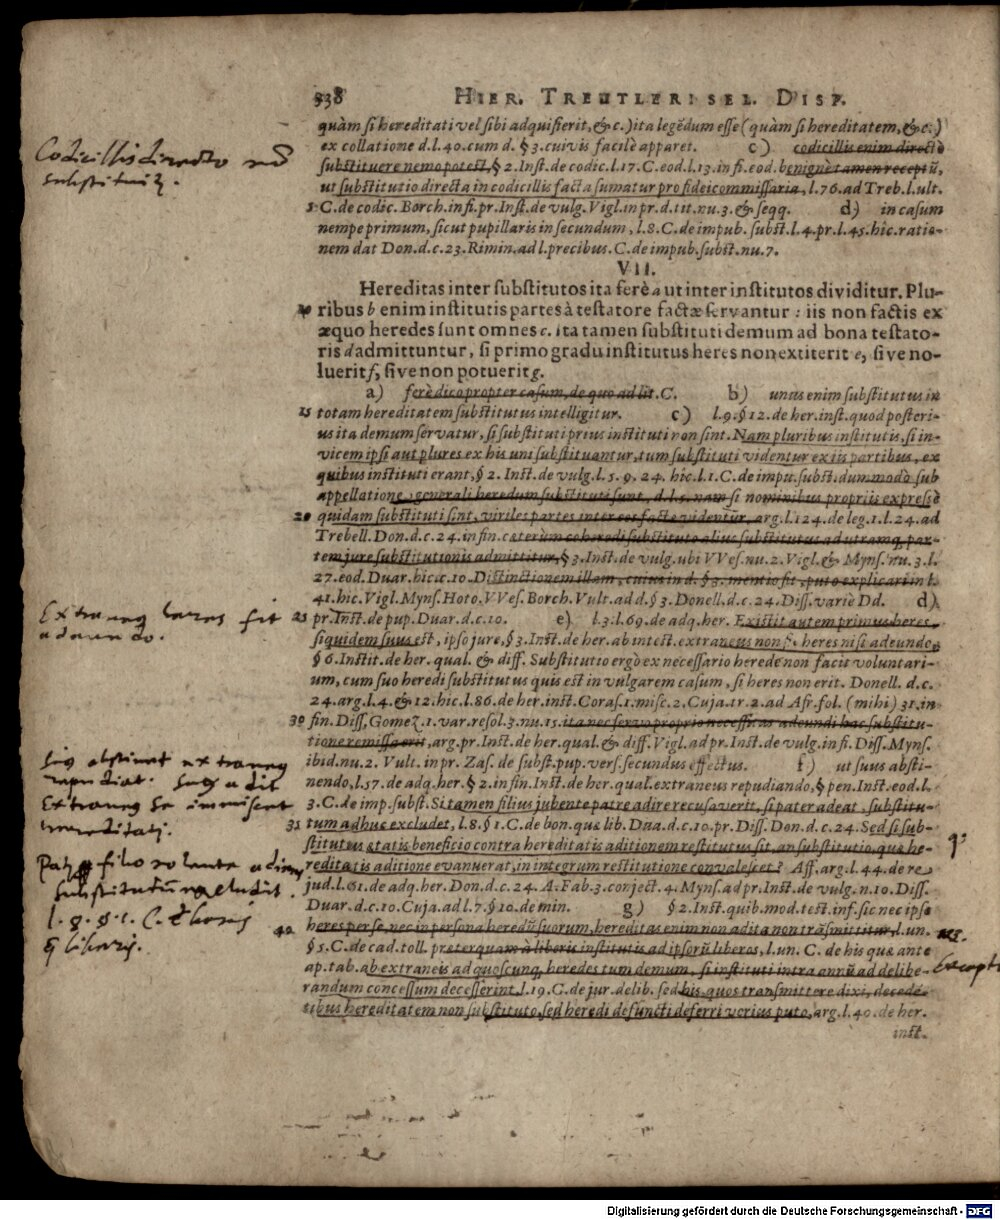 338 HIER. TREUTLERI SEL. DISP.
quàm si hereditati vel sibi adquisierit, &c.) ita legẽdum esse (quàm si hereditatem, &c.)
ex collatione d.l.40.cum d. §3.cuivis facilè apparet. c) codicillis enim directè
substituere nemo potest, § 2. Inst. de codic.l.17.C.eod.l.13.in fi.eod.benignè tamen receptũ,
ut substitutio directa in codicillis facta sumatur pro fideicommissaria, l.76.ad Treb.l.ult.
5 C.de codic. Borch.in fi.pr.Inst.de vulg.Vigl.in pr.d.tit.nu.3.& seqq. d) in casum
nempe primum, sicut pupillaris in secundum, l.8.C.de impub.subst.l.4.pr.l.45.hîc.ratio-
nem dat Don.d.c.23.Rimin.ad l.precibus.C.de impub.subst.nu.7.
VII.
Hereditas inter substitutos ita ferè a ut inter institutos dividitur. Plu-
10 ribus b enim institutis partes à testatore factæ servantur : iis non factis ex
æquo heredes sunt omnes c. ita tamen substituti demum ad bona testato-
ris d admittuntur, si primo gradu institutus heres non extiterit e, sive no-
luerit f, sive non potuerit g.
a) ferè dico propter casum, de quo ad lit.C. b) unus enim substitutus in
15 totam hereditatem substitutus intelligitur. c) l.9.§12.de her.inst.quod posteri-
us ita demum servatur, si substituti prius instituti non sint. Nam pluribus institutis, si in-
vicem ipsi aut plures ex his uni substituantur, tum substituti videntur ex iis partibus, ex
quibus instituti erant, § 2. Inst. de vulg.l.5.9.24. hic.l.1.C.de impu.subst.dummodò sub
appellatione generali heredum substituti sunt, d.l.5. nam si nominibus propriis expresse
20 quidam substituti sint, viriles partes inter eos factæ videntur, arg.l.124.de leg.1.l.24.ad
Trebell.Don.d.c.24.in fin.ceterùm coheredi substituto alius substitutus ad utramq; par-
tem jure substitutionis admittitur, §3.Inst.de vulg.ubi VVes.nu.2.Vigl.& Myns.nu.3.l.
27.eod.Duar.hic.c.10.Distinctionem illam, cuius in d.§3.mentio fit, puto explicari in l.
41.hic.Vigl.Myns.Hoto.VVes.Borch.Vult.ad d.§3.Donell.d.c.24.Diss.variè Dd. d)
25 pr.Inst.de pup.Duar.d.c.10. e) l.3.l.69.de adq.her. Existit autem primus heres,
siquidem suus est, ipso jure, §3.Inst.de her.ab intest.extraneus non fit heres nisi adeundo,
§6.Instit.de her.qual.& diff. Substitutio ergò ex necessario herede non facit voluntari-
um, cum suo heredi substitutus quis est in vulgarem casum, si heres non erit. Donell. d.c.
24.arg.l.4.&12.hic.l.86.de her.inst.Coras.1.misc.2.Cuja.tr.2.ad Afr.fol.(mihi) 31.in
30 fin.Diss.Gomez.1.var.resol.3.nu.15.ita nec servo proprio necessitas adeundi hac substitu-
tione remissa erit, arg.pr.Inst.de her.qual.& diff.Vigl.ad pr.Inst.de vulg.in fi.Diss.Myns.
ibid.nu.2. Vult.in pr. Zas. de subst.pup.vers.secundus effectus. f) ut suus absti-
nendo, l.57.de adq.her.§2.in fin.Inst.de her.qual.extraneus repudiando, § pen.Inst.eod.l.
3.C.de imp.subst.Si tamen filius jubente patre adire recusaverit, si pater adeat, substitu-
35 tum adhuc excludet, l.8.§1.C.de bon.quæ lib.Dua.d.c.10.pr.Diss.Don.d.c.24.Sed si sub-
stitutus ætatis beneficio contra hereditatis aditionem restitutus sit, an substitutio, quæ he-
reditatis aditione evanuerat, in integrum restitutione convalescet? Aff.arg.l.44.de re
jud.l.61.de adq.her.Don.d.c.24.A.Fab.3.conject.4.Myns.ad pr.Inst.de vulg.n.10.Diss.
Duar.d.c.10.Cuja.ad l.7.§10.de min. g) §2.Inst.quib.mod.test.inf.sic nec ipse
40 heres per se, nec in persona heredũ suorum, hereditas enim non adita non trãsmittitur, l.un.
§5.C.de cad.toll.præterquam à liberis institutis ad ipsorũ liberos, l.un. C. de his quæ ante
ap.tab.ab extraneis ad quoscunq; heredes tum demum, si instituti intra annũ ad delibe-
randum concessum decesserint, l.19.C.de jur.delib.sed his, quos transmittere dixi, decedẽ-
tibus hereditatem non substituto, sed heredi defuncti deferri verius puto, arg.l.40.de her.
inst.
Codicillis directo
Extraneus heres fit
adeundo.
suus abstinet extraneus
repudiat.
hereditati.
substitutum excludit.
Digitalisierung gefördert durch die Deutsche Forschungsgemeinschaft - DFG